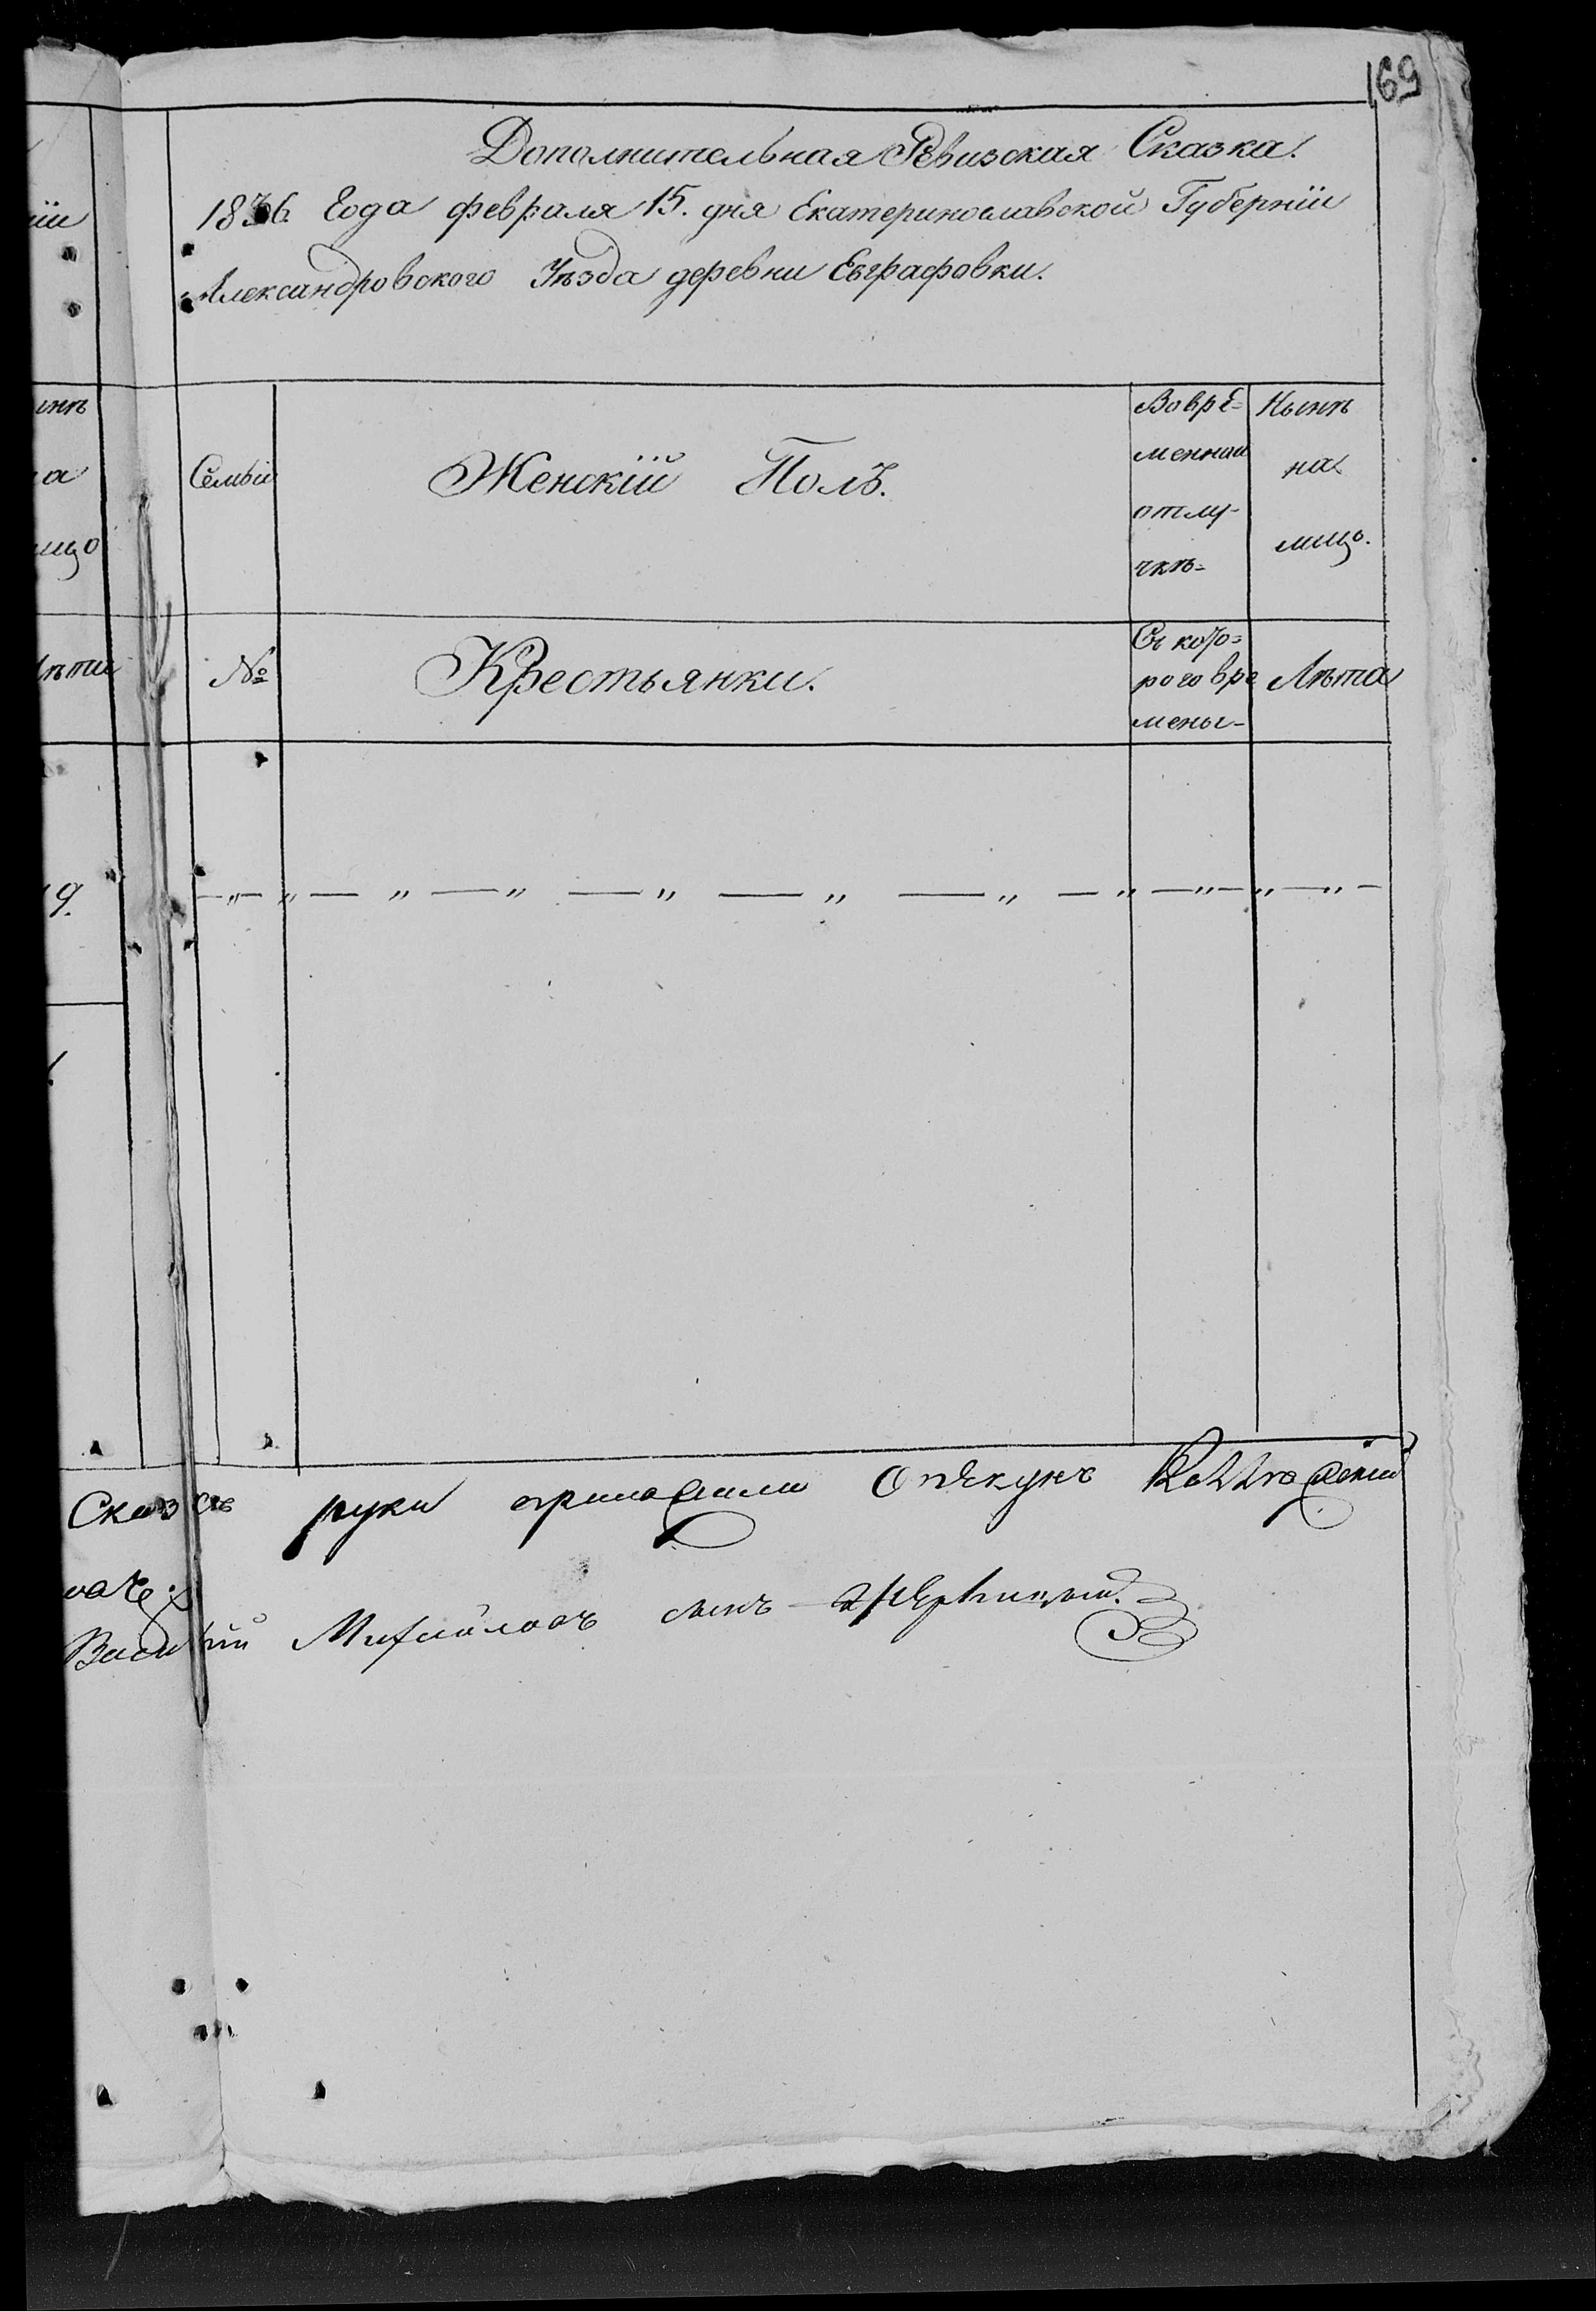 169
Дополнительная Ревизская Сказка.
1836 Года февраля 15. дня Екатеринославской Губернїи
Александровского Уѣзда деревни Евграфовки.
Семьи
Женскїй Полъ.
Вовре-
менной
отлу-
чкѣ-
Нынѣ
на
лицо.
№
Крестьянки.
Съ кото-
рого вре
мены-
Лѣта
— „ — „ — „ — „ — „ — „ — „ — „ — „ — „ — „ —
9.
Сказ руки опекунъ
Василий Михайловъ сынъ